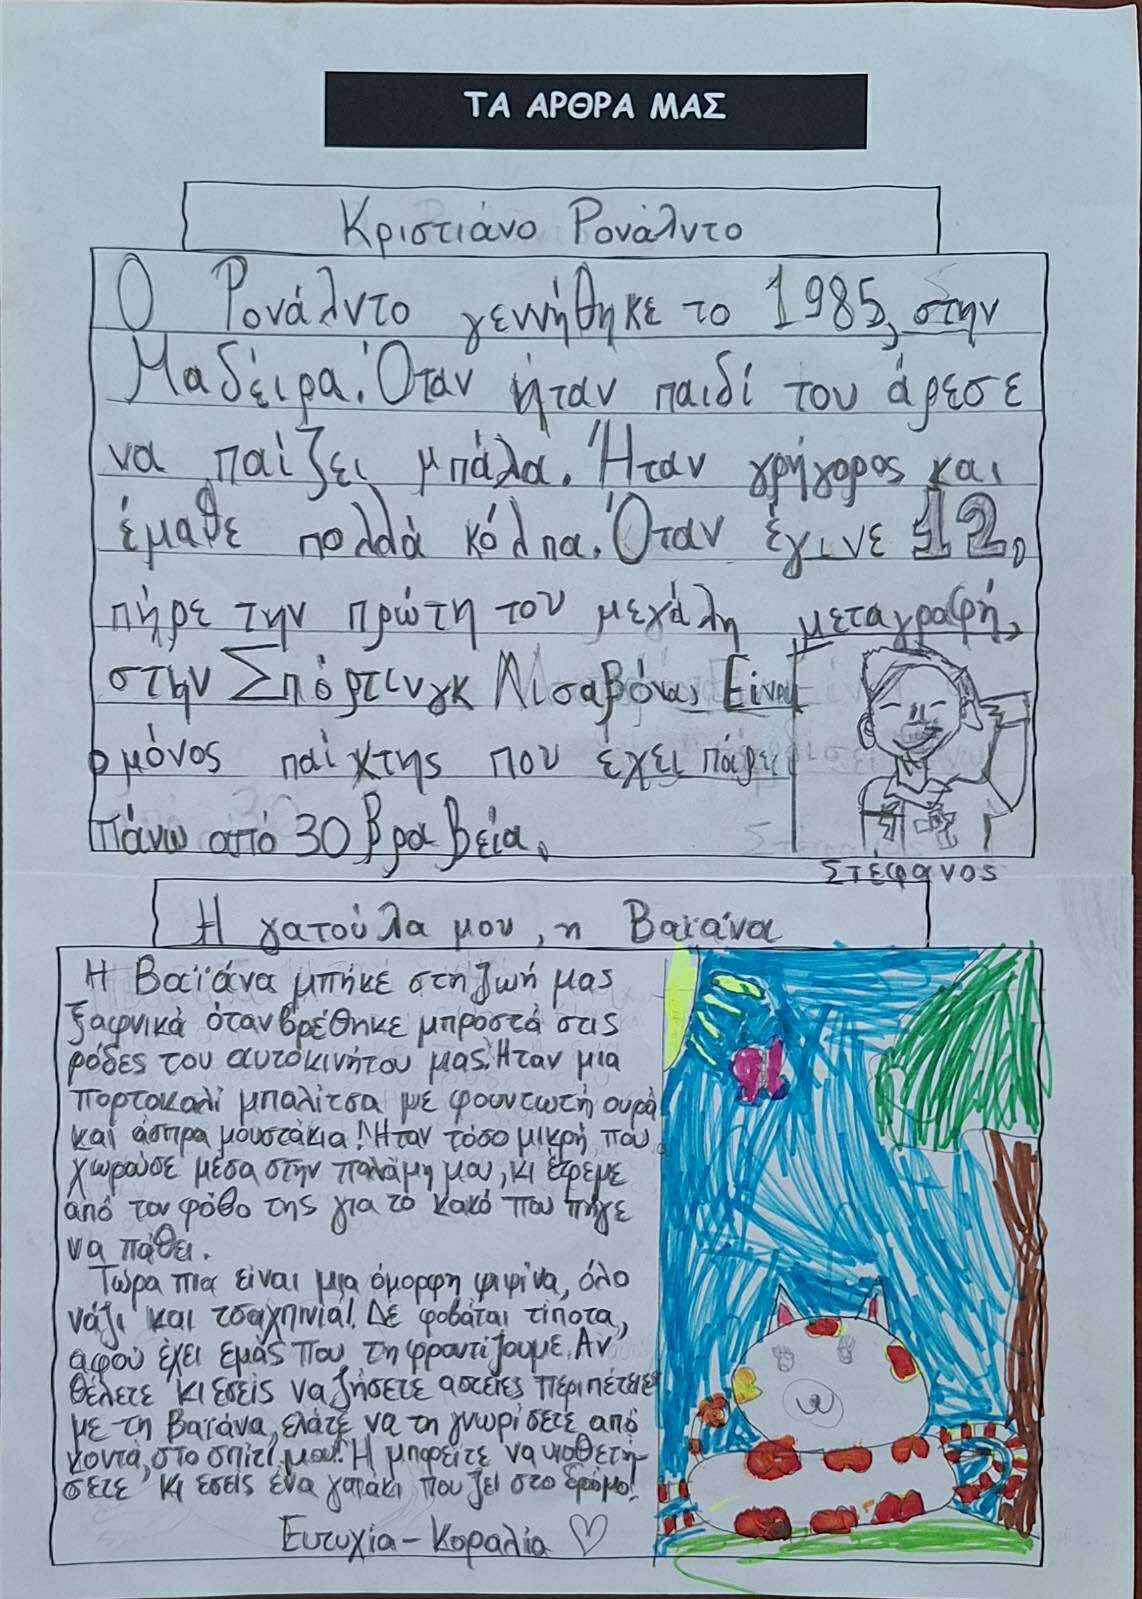 ΤΑ ΑΡΘΡΑ ΜΑΣ
Κριστιάνο Ρονάλντο
Ο Ρονάλντο γεννήθηκε το 1985, στην
Μαδέιρα. Όταν ήταν παιδί του άρεσε
να παίζει μπάλα. Ήταν γρήγορος και
έμαθε πολλά κόλπα. Όταν έγινε 12,
πήρε την πρώτη του μεγάλη μεταγραφή,
στην Σπόρτινγκ Λισαβόνας. Είναι
ο μόνος παίχτης που έχει πάρει
πάνω από 30 βραβεία.
Στέφανος
Η γατούλα μου, η Βαϊάνα
Η Βαϊάνα μπήκε στη ζωή μας
ξαφνικά όταν βρέθηκε μπροστά στις
ρόδες του αυτοκινήτου μας. Ήταν μια
πορτοκαλί μπαλίτσα με φουντωτή ουρά
και άσπρα μουστάκια! Ήταν τόσο μικρή, που
χωρούσε μέσα στην παλάμη μου, κι έτρεμε
από τον φόβο της για το κακό που πήγε
να πάθει.
Τώρα πια είναι μια όμορφη ψιψίνα, όλο
νάζι και τσαχπινιά! Δε φοβάται τίποτα,
αφού έχει εμάς που τη φροντίζουμε. Αν
θέλετε κι εσείς να ζήσετε αστείες περιπέτειες
με τη Βαϊάνα, ελάτε να τη γνωρίσετε από
κοντά, στο σπίτι μου! Ή μπορείτε να υιοθετή-
σετε κι εσείς ένα γατάκι που ζει στο δρόμο!
Ευτυχία - Κοραλία